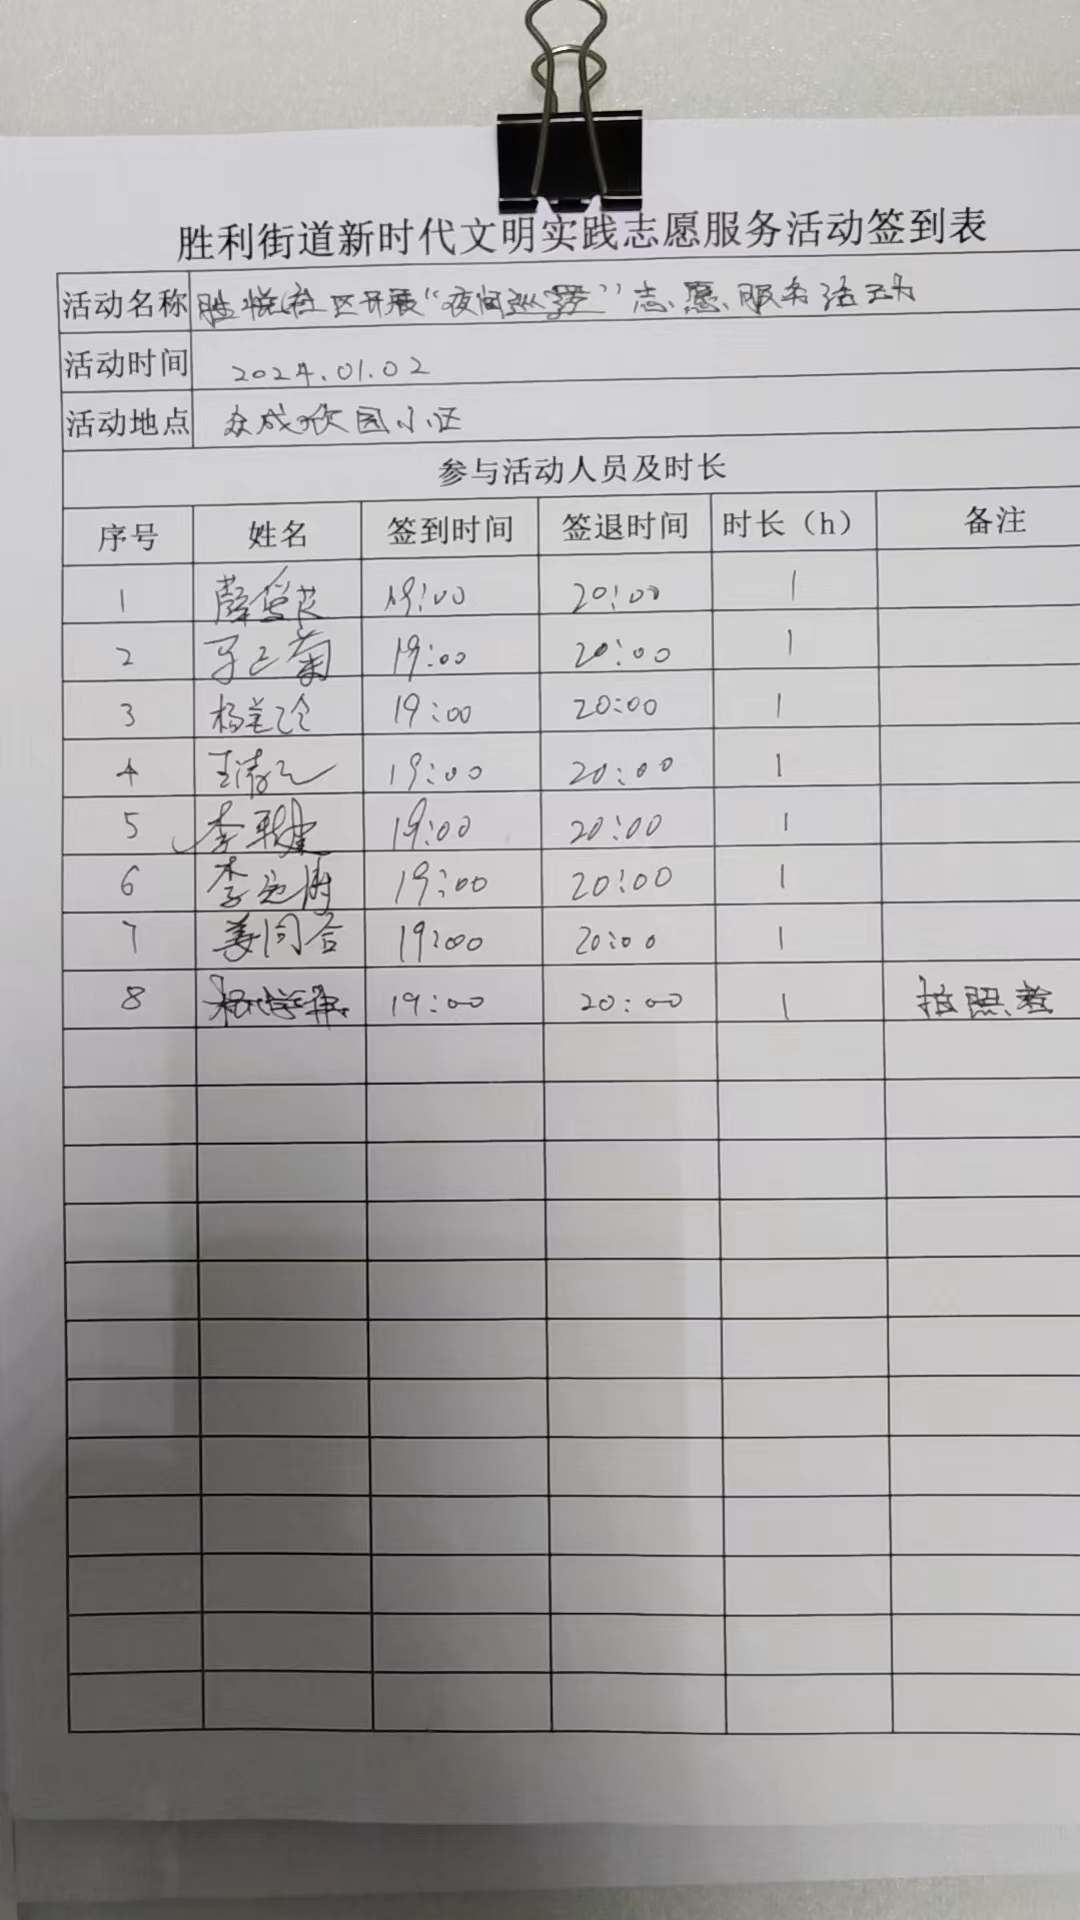 胜利街道新时代文明实践志愿服务活动签到表
活动名称 胜悦社区开展“夜间巡逻”志愿服务活动
活动时间 2024.01.02
活动地点 众成欣园小区
参与活动人员及时长
序号 姓名 签到时间 签退时间 时长（h） 备注
1 19:00 20:00 1
2 19:00 20:00 1
3 19:00 20:00 1
4 19:00 20:00 1
5 19:00 20:00 1
6 19:00 20:00 1
7 姜同合 19:00 20:00 1
8 19:00 20:00 1 拍照者